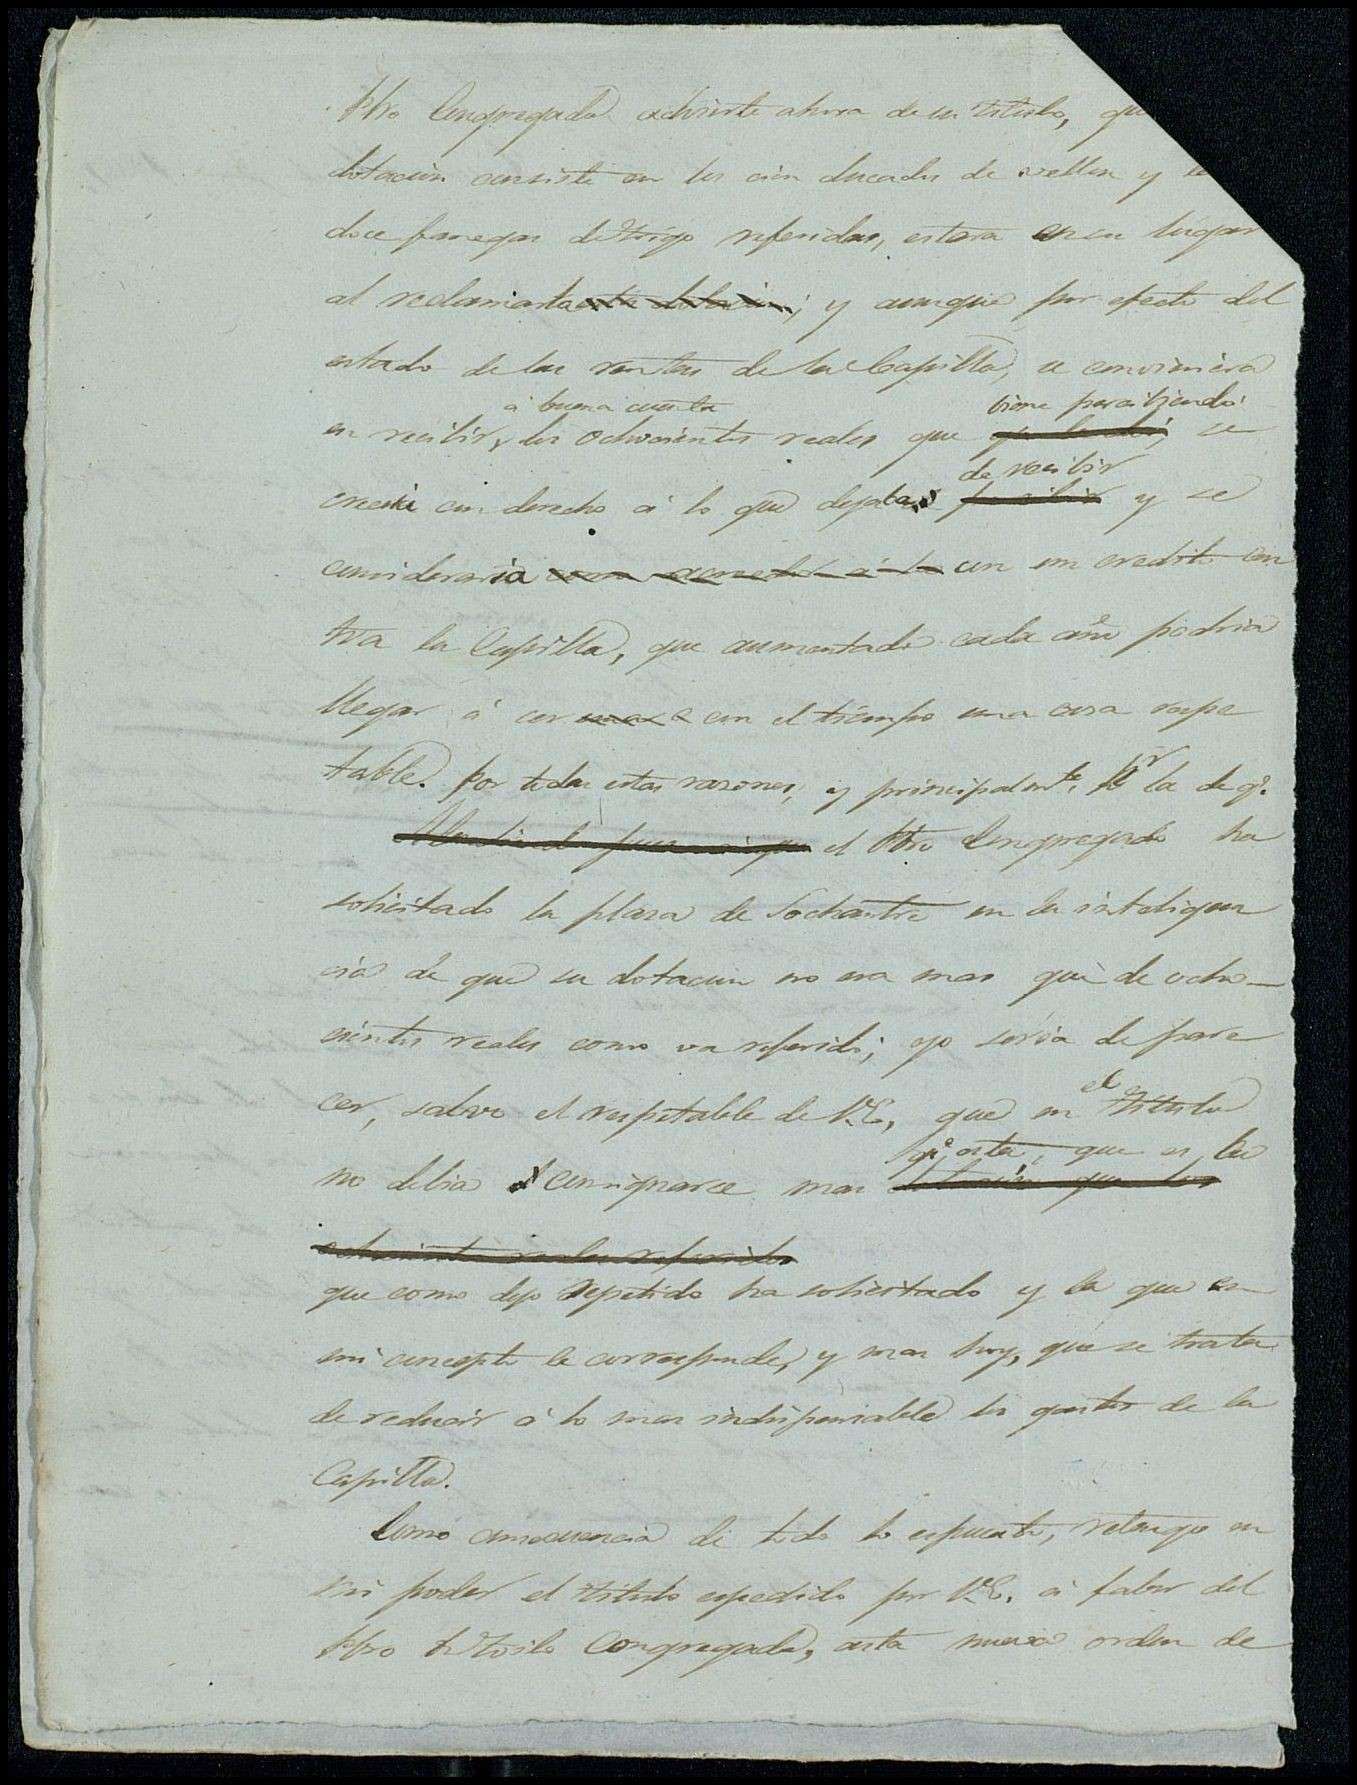 Pbro Congregado advierte ahora de su titulo, que
dotacion consiste en los cien ducados de vellon y
doce fanegas de trigo referidas, estara en su lugar
al reclamarla; y aunque por efecto del
estado de las rentas de la Capilla, se conviniera
á buena cuenta tiene percibiendo
en recibir, los ochocientos reales que se
de recibir
creeria con derecho á lo que dejaba y se
consideraria con un credito con
tra la Capilla, que aumentado cada año podria
llegar á ser con el tiempo una cosa respe
table. Por todas estas razones, y principalmte. pr la de q.
el Pbro Congregado ha
solicitado la plaza de Sochantre en la inteligen
cia de que su dotacion no era mas que de ocho-
cientos reales como va referido; yo seria de pare
cer, salvo el respetable de V.E., que en el titulo
qe esta, que es la
no debia consignarse mas
ochocientos reales referidos
que como dejo repetido ha solicitado y la que en
mi concepto le corresponde, y mas hoy, que se trata
de reducir á lo mas indispensable los gastos de la
Capilla.
Como consecuencia de todo lo espuesto, retengo en
mi poder el titulo espedido por V.E. á fabor del
Pbro Congregado, asta nueva orden de